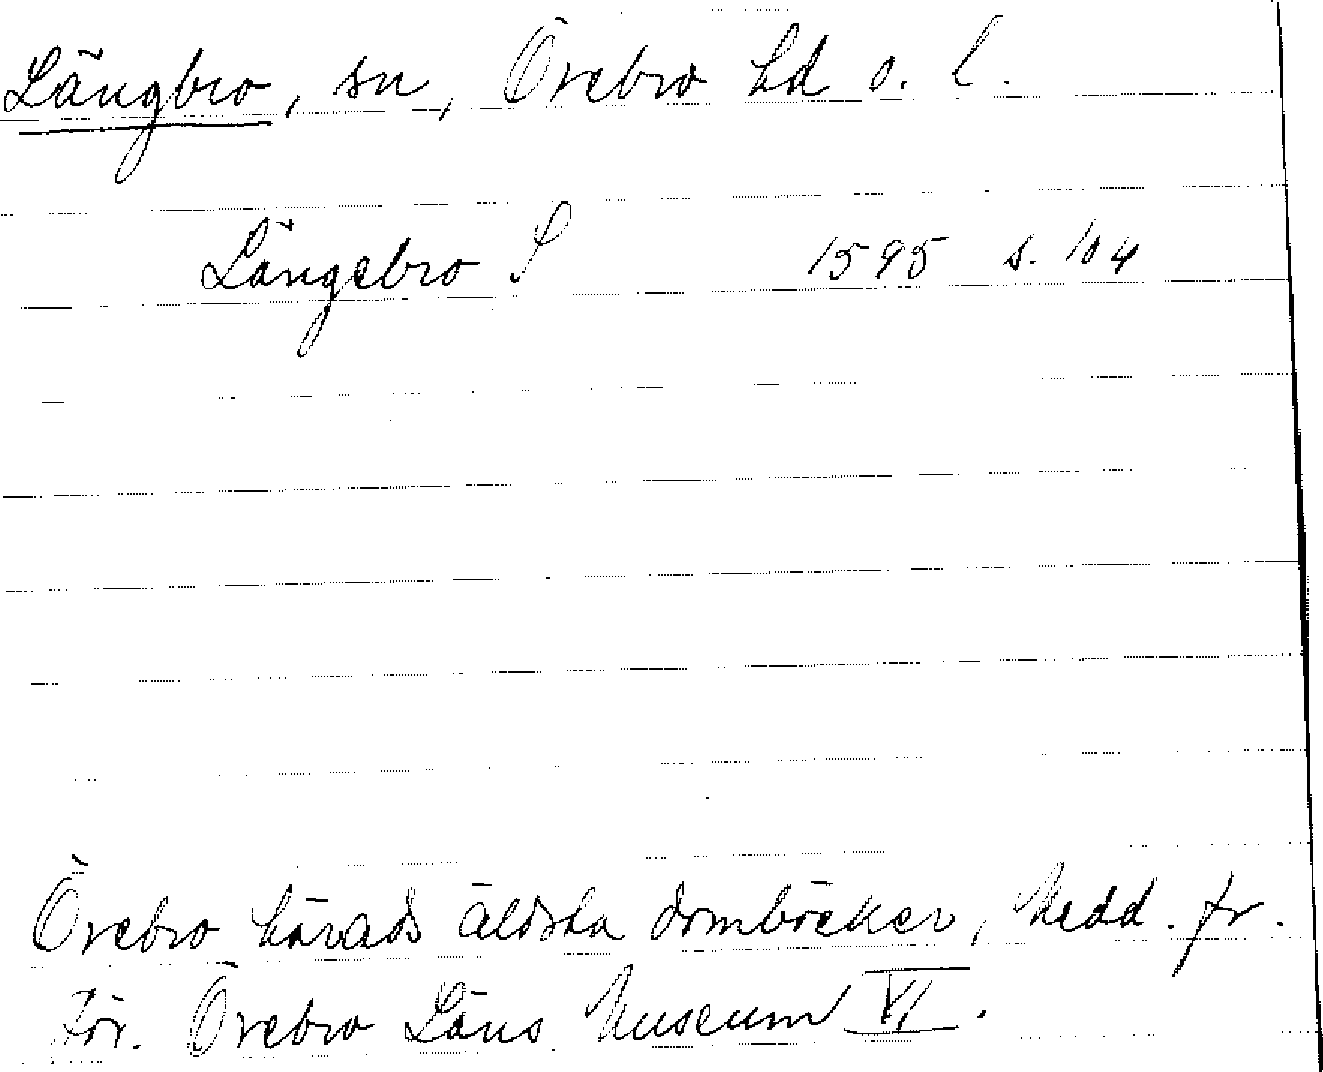 Längbro, sn, Örebro hd o. l.
Längebro S 1595 s. 104
Örebro härads äldsta domböcker, Medd. fr.
För. Örebro Läns Museum VI.